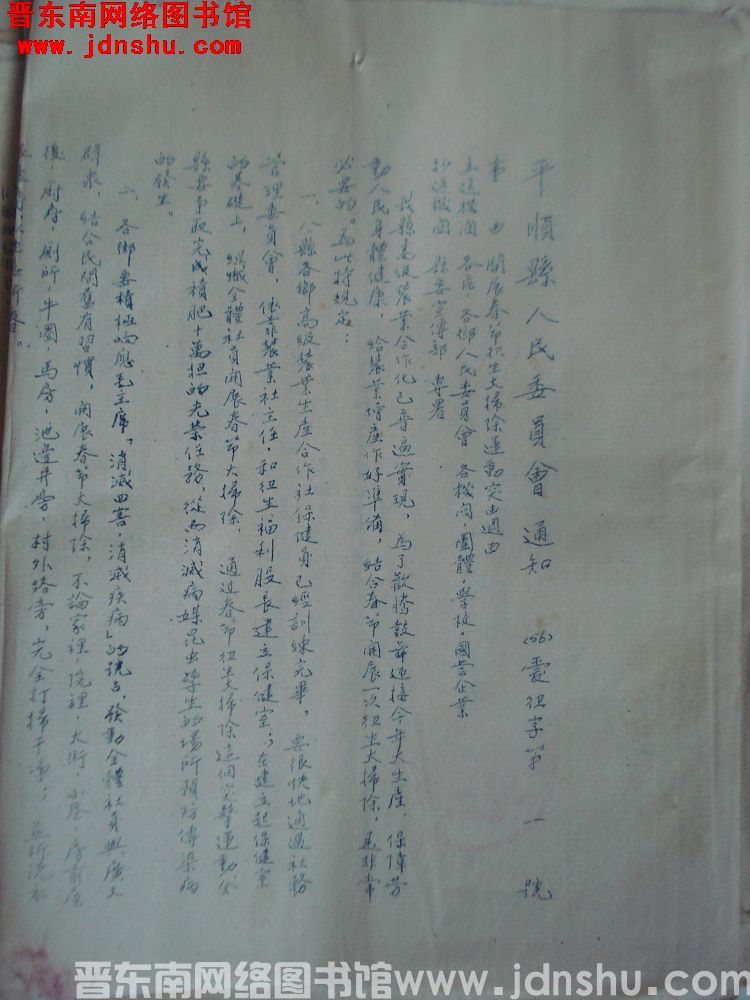 晋东南网络图书馆
www.jdnshu.com
平順縣人民委員會通知 (56)霍衛字第一號
事由 開展春節衛生大掃除運動突由週由
主送機関 各區、各鄉人民委員會 各機関、團體、學校、國営企業
抄送機関 縣委宣傳部 專署
我縣高級農業合作化已普遍實現，為了歡騰鼓舞迎接今年大生產，保障劳
動人民身體健康，給農業增產作好準備，結合春節開展一次衛生大掃除，是非常
必要的。為此特規定：
一、八縣各鄉高級農業生產合作社保健員已經訓練完畢，要很快地通過社務
管理委員會，依靠農業社主任，和衛生福利股長建立保健室；在建立起保健室
的基礎上，組織全體社員開展春節大掃除，通過春節衛生大掃除這個突擊運動全
縣要争取完成積肥十萬担的光榮任務，從而消滅病媒昆虫孳生的場所預防傳染病
的發生。
二、各鄉要積極响應毛主席「消滅四害，消滅疾病」的號召，發動全體社員與廣大
群眾，結合民間舊有習慣，開展春節大掃除，不論家裡，院裡，大街，小巷，房前屋
後，厨房，厠所，牛圈，馬房，池邊井旁，村外路旁，完全打掃干凈；並拆洗衣
晋东南网络图书馆www.jdnshu.com